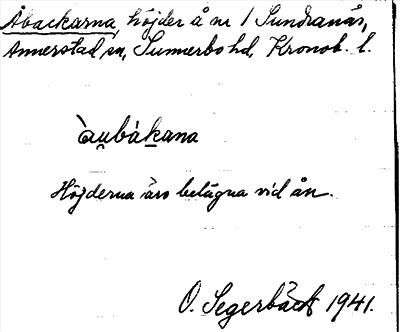 Åbackarna, höjder å nr 1 Sundranäs,
Annerstad sn, Sunnerbo hd, Kronob. l.
àu̯bàkana
Höjderna äro belägna vid ån.
O. Segerbäck 1941.